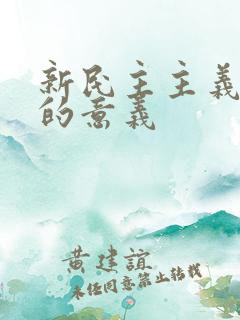 新民主主義
的意義
黄建誼
未经同意禁止转载